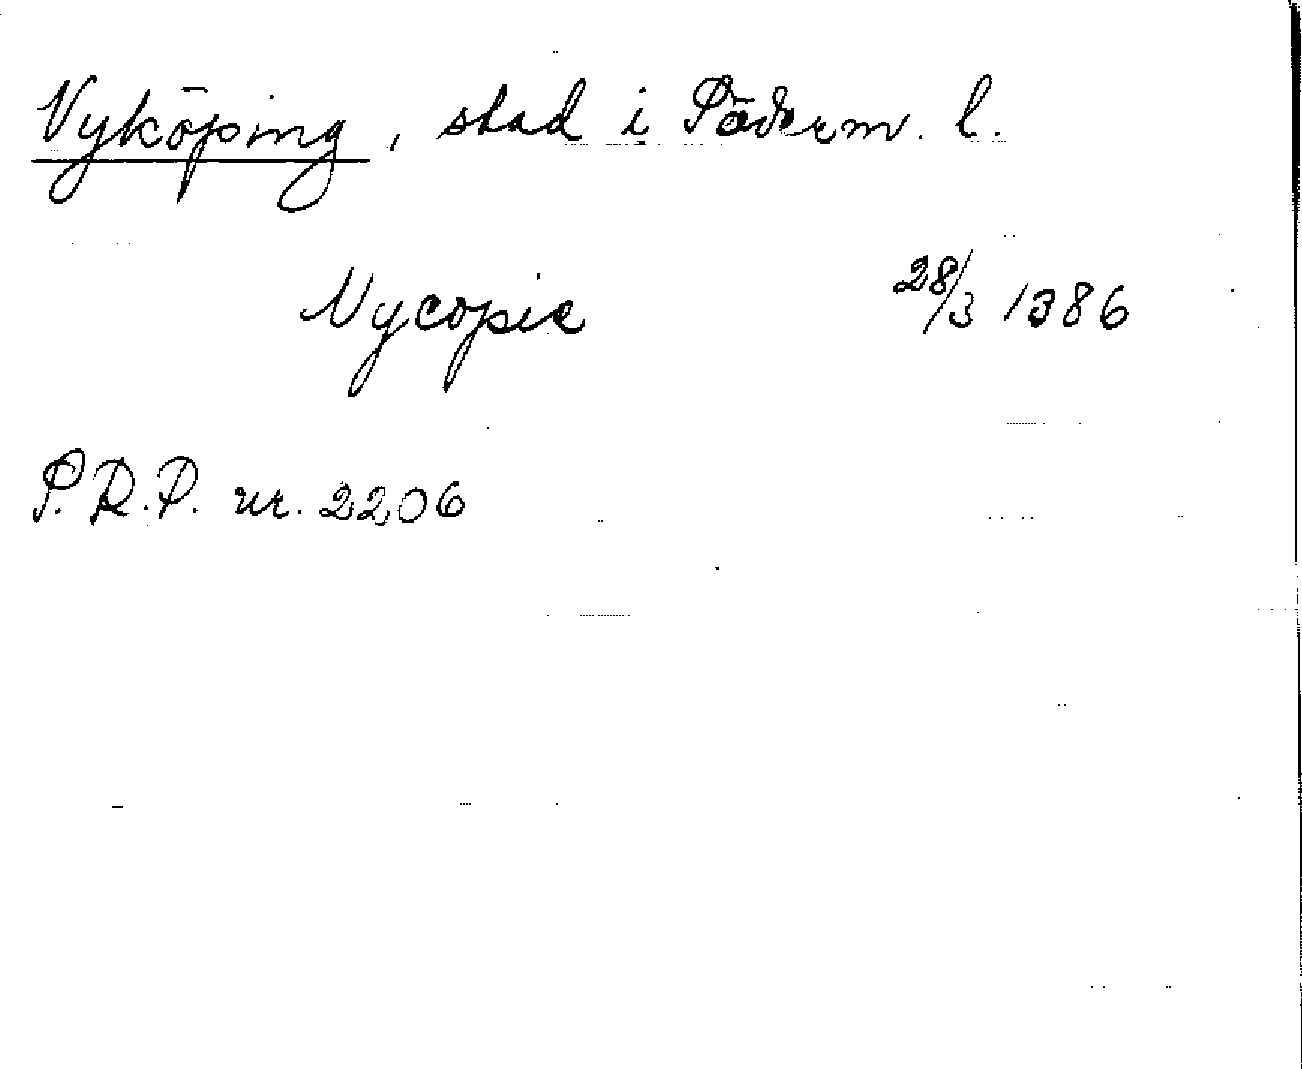 Nyköping, stad i Söderm. l.
Nycopie 28/3 1386
S.R.P. nr. 2206